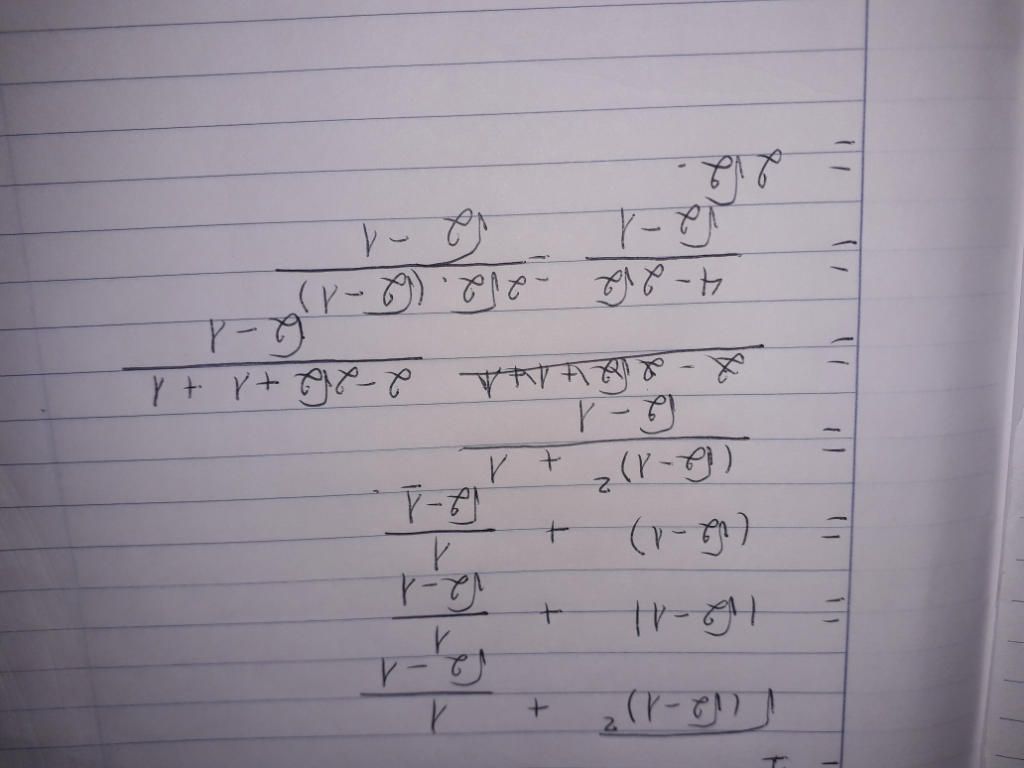 √(√2-1)² + 1/(√2-1)
= |√2-1| + 1/(√2-1)
= (√2-1) + 1/(√2-1)
= ((√2-1)² + 1)/(√2-1)
= (2-2√2+1+1)/(√2-1)
= (4-2√2)/(√2-1) = (2√2.(√2-1))/(√2-1)
= 2√2.